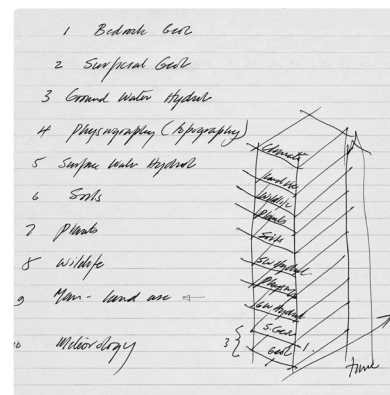 1 Bedrock Geol
2 Surficial Geol
3 Ground Water Hydrol
4 Physiography (topography)
5 Surface Water Hydrol
6 Soils
7 Plants
8 Wildlife
9 Man - land use
10 Meteorology
Climate
Land Use
Wildlife
Plants
Soils
SW Hydrol
Physiog
GW Hydrol
S. Geol
3 { Geol 1.
time